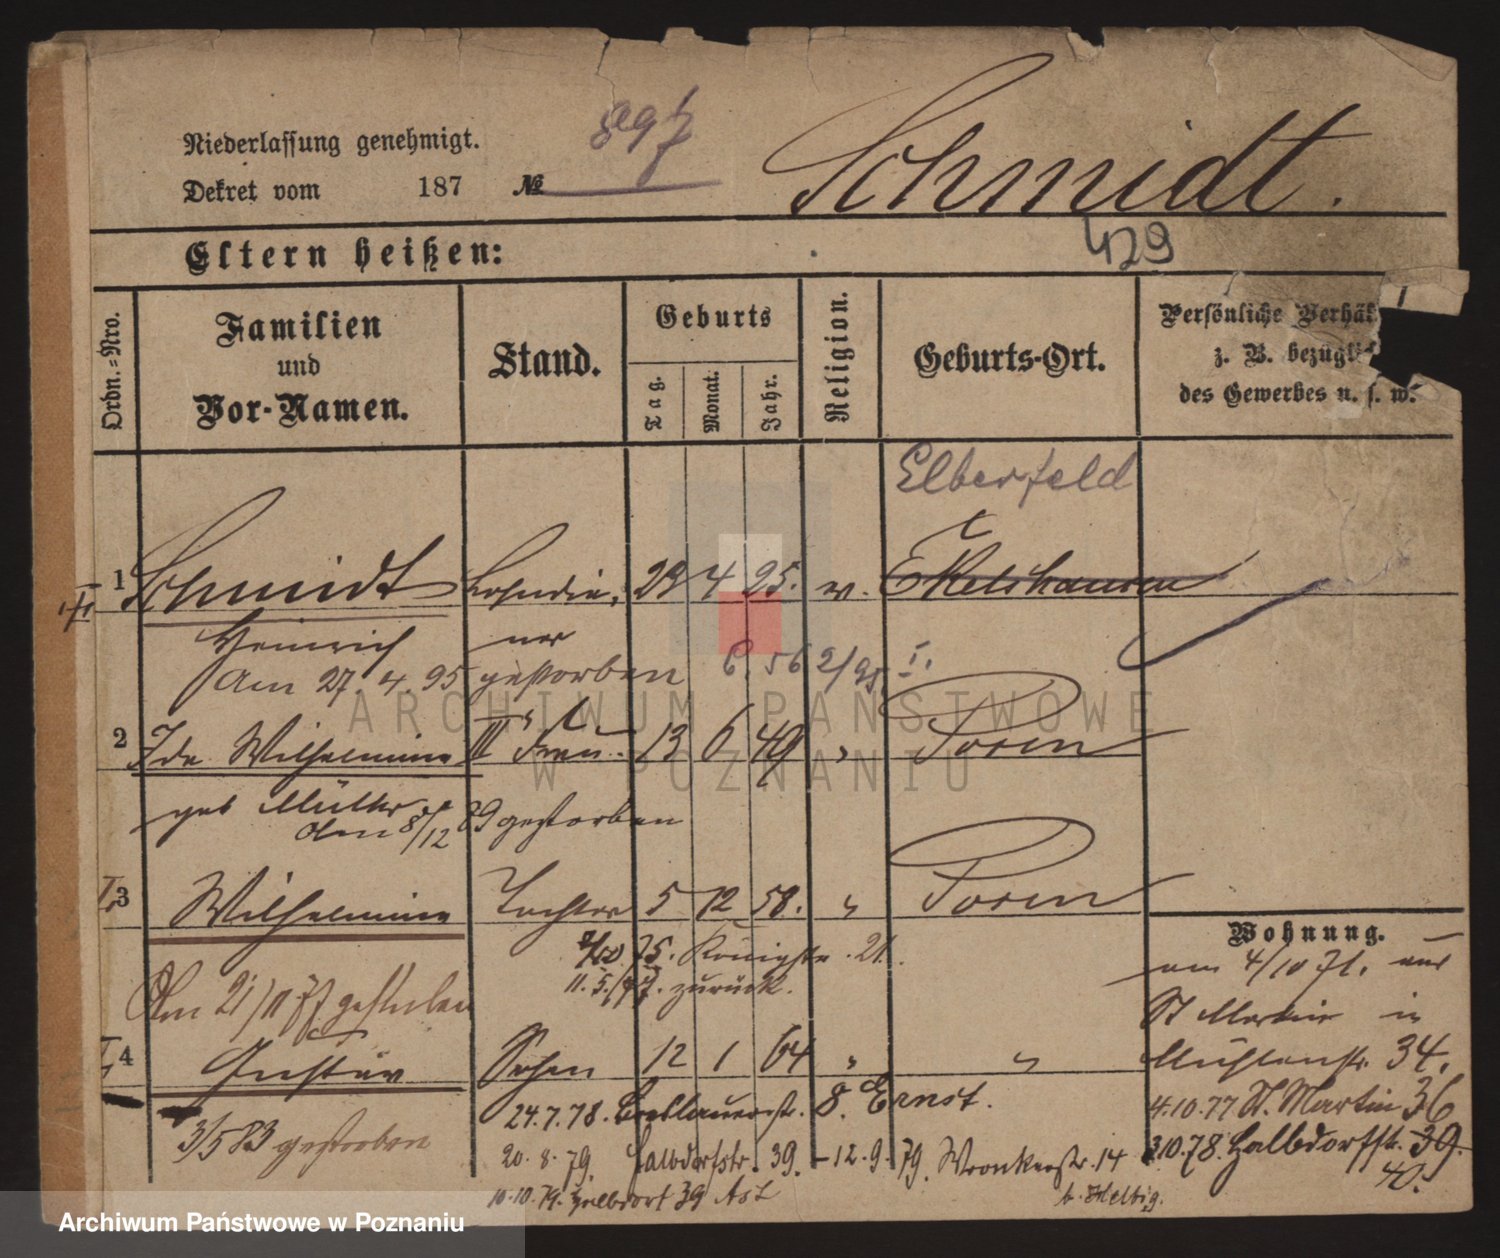 Niederlassung genehmigt.
Dekret vom 187 № 897
Schmidt.
Eltern heißen: 429
Ordn.=Nro.
Familien und Vor-Namen.
Stand.
Geburts
Tag. Monat. Jahr.
Religion.
Geburts-Ort.
Persönliche Verhäl
z. B. bezügli
des Gewerbes u. s. w.
Elberfeld
1 Schmidt Lohndie= 29 4 25. ev.
Heinrich ner
Am 27. 4. 95 gestorben
2 Ida Wilhelmine III Frau. 13 6 49 " Posen
geb Müller
den 8/12 89 gestorben
3 Wilhelmine Tochter 5 12 58. " Posen
75. Königstr. 21.
11. 5. 77. zurück.
Am 21/11 77 gestorben
4 Gustav Sohn 12 1 64 " "
3/5 83 gestorben
24.7.78. Breslauerstr. 8. Ernst.
20. 8. 79. Halbdorfstr. 39. – 12. 9. 79. Wronkerstr. 14
b. Helbig.
10.10.79. Halbdorf 39
Wohnung.
am 4/10 71. aus
St Martin in
Mühlenstr. 34.
4.10.77 St. Martin 36
3.10.78. Halbdorfstr. 39.
40.
ARCHIWUM PAŃSTWOWE
W POZNANIU
Archiwum Państwowe w Poznaniu